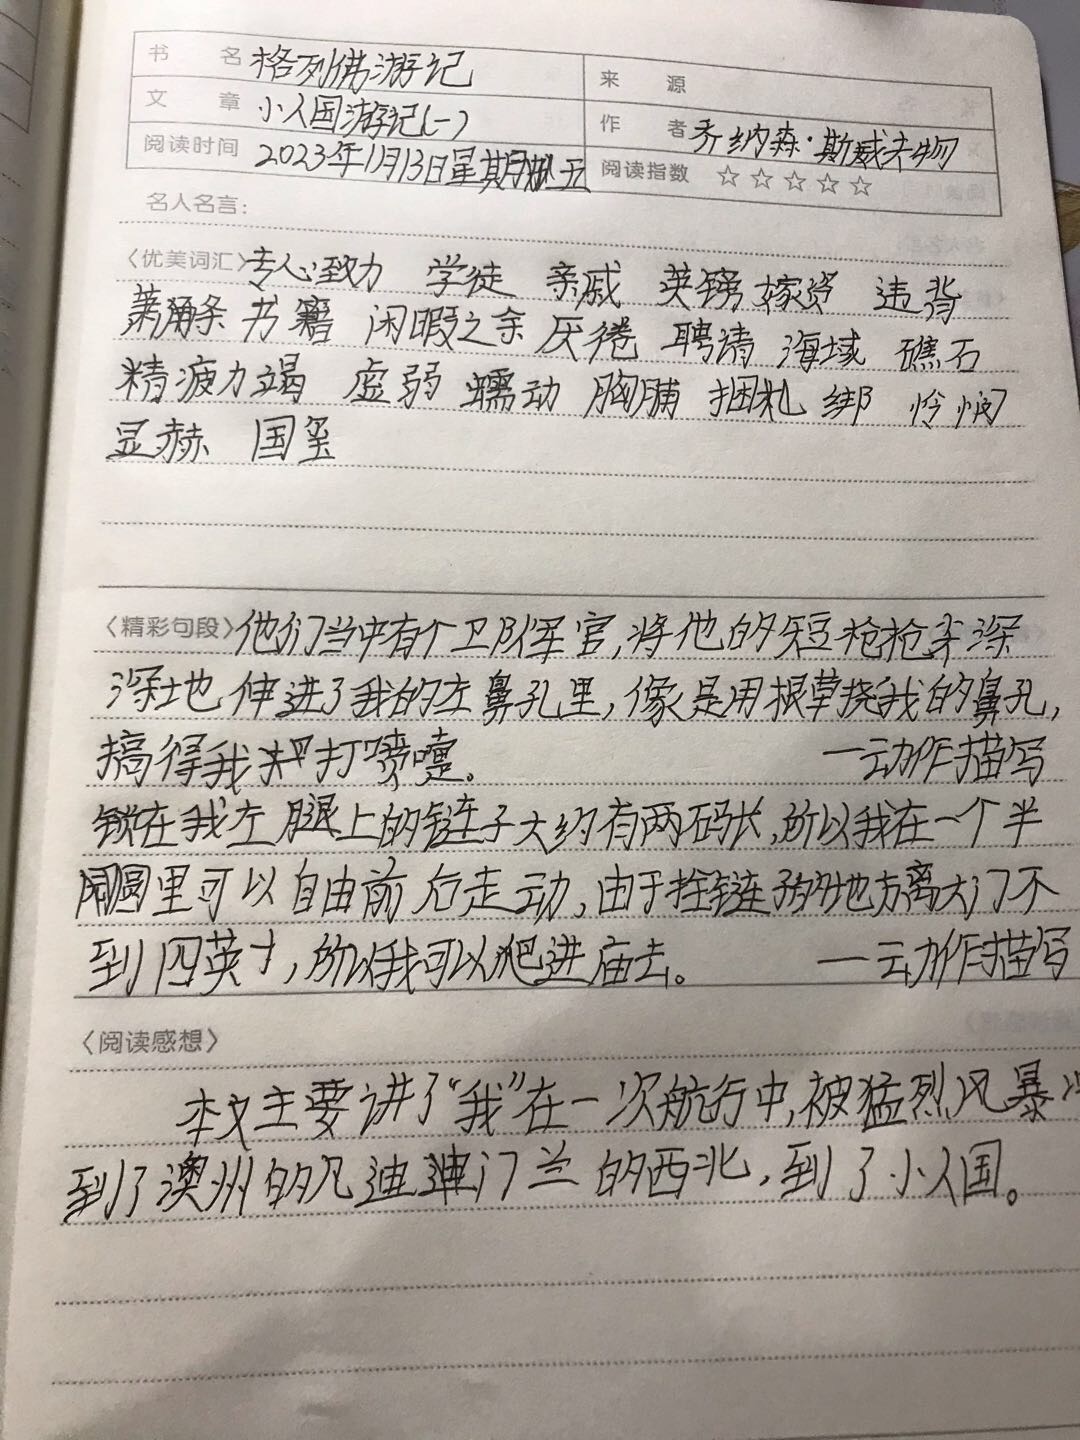 书 名 格列佛游记 来 源
文 章 小人国游记(一) 作 者 乔纳森·斯威夫特
阅读时间 2023年11月13日星期五 阅读指数 ☆☆☆☆☆
名人名言:
〈优美词汇〉专心致力 学徒 亲戚 英镑 嫁资 违背
萧条 书籍 闲暇之余 厌倦 聘请 海域 礁石
精疲力竭 虚弱 蠕动 胸脯 捆扎 绑 怜悯
显赫 国玺
〈精彩句段〉他们当中有个卫队军官,将他的短枪枪尖深
深地伸进了我的左鼻孔里,像是用根草挠我的鼻孔,
搞得我打喷嚏。 —动作描写
锁在我左腿上的链子大约有两码长,所以我在一个半
圆里可以自由前后走动,由于拴链子的地方离大门不
到四英寸,所以我可以爬进庙去。 —动作描写
〈阅读感想〉
本文主要讲了“我”在一次航行中,被猛烈风暴
到了澳州的凡迪门兰的西北,到了小人国。